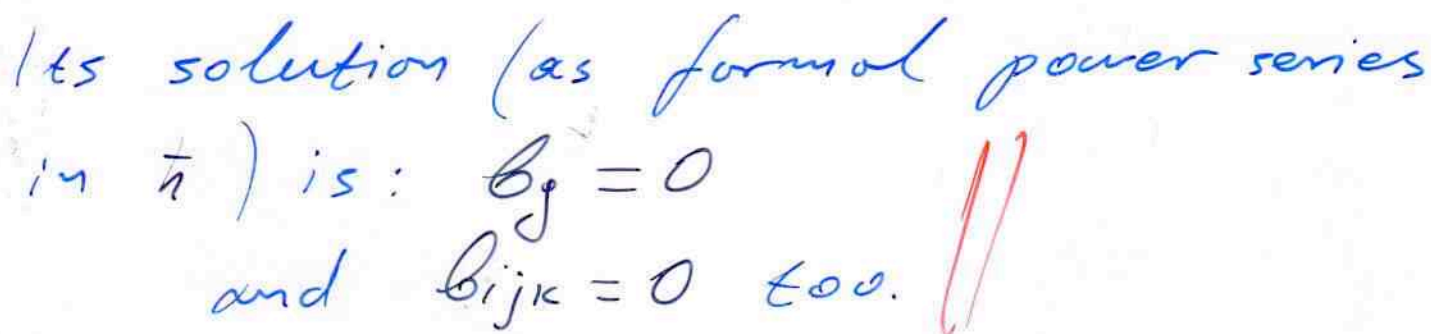 Its solution (as formal power series
in ħ) is: b_g = 0
and b_ijk = 0 too. //